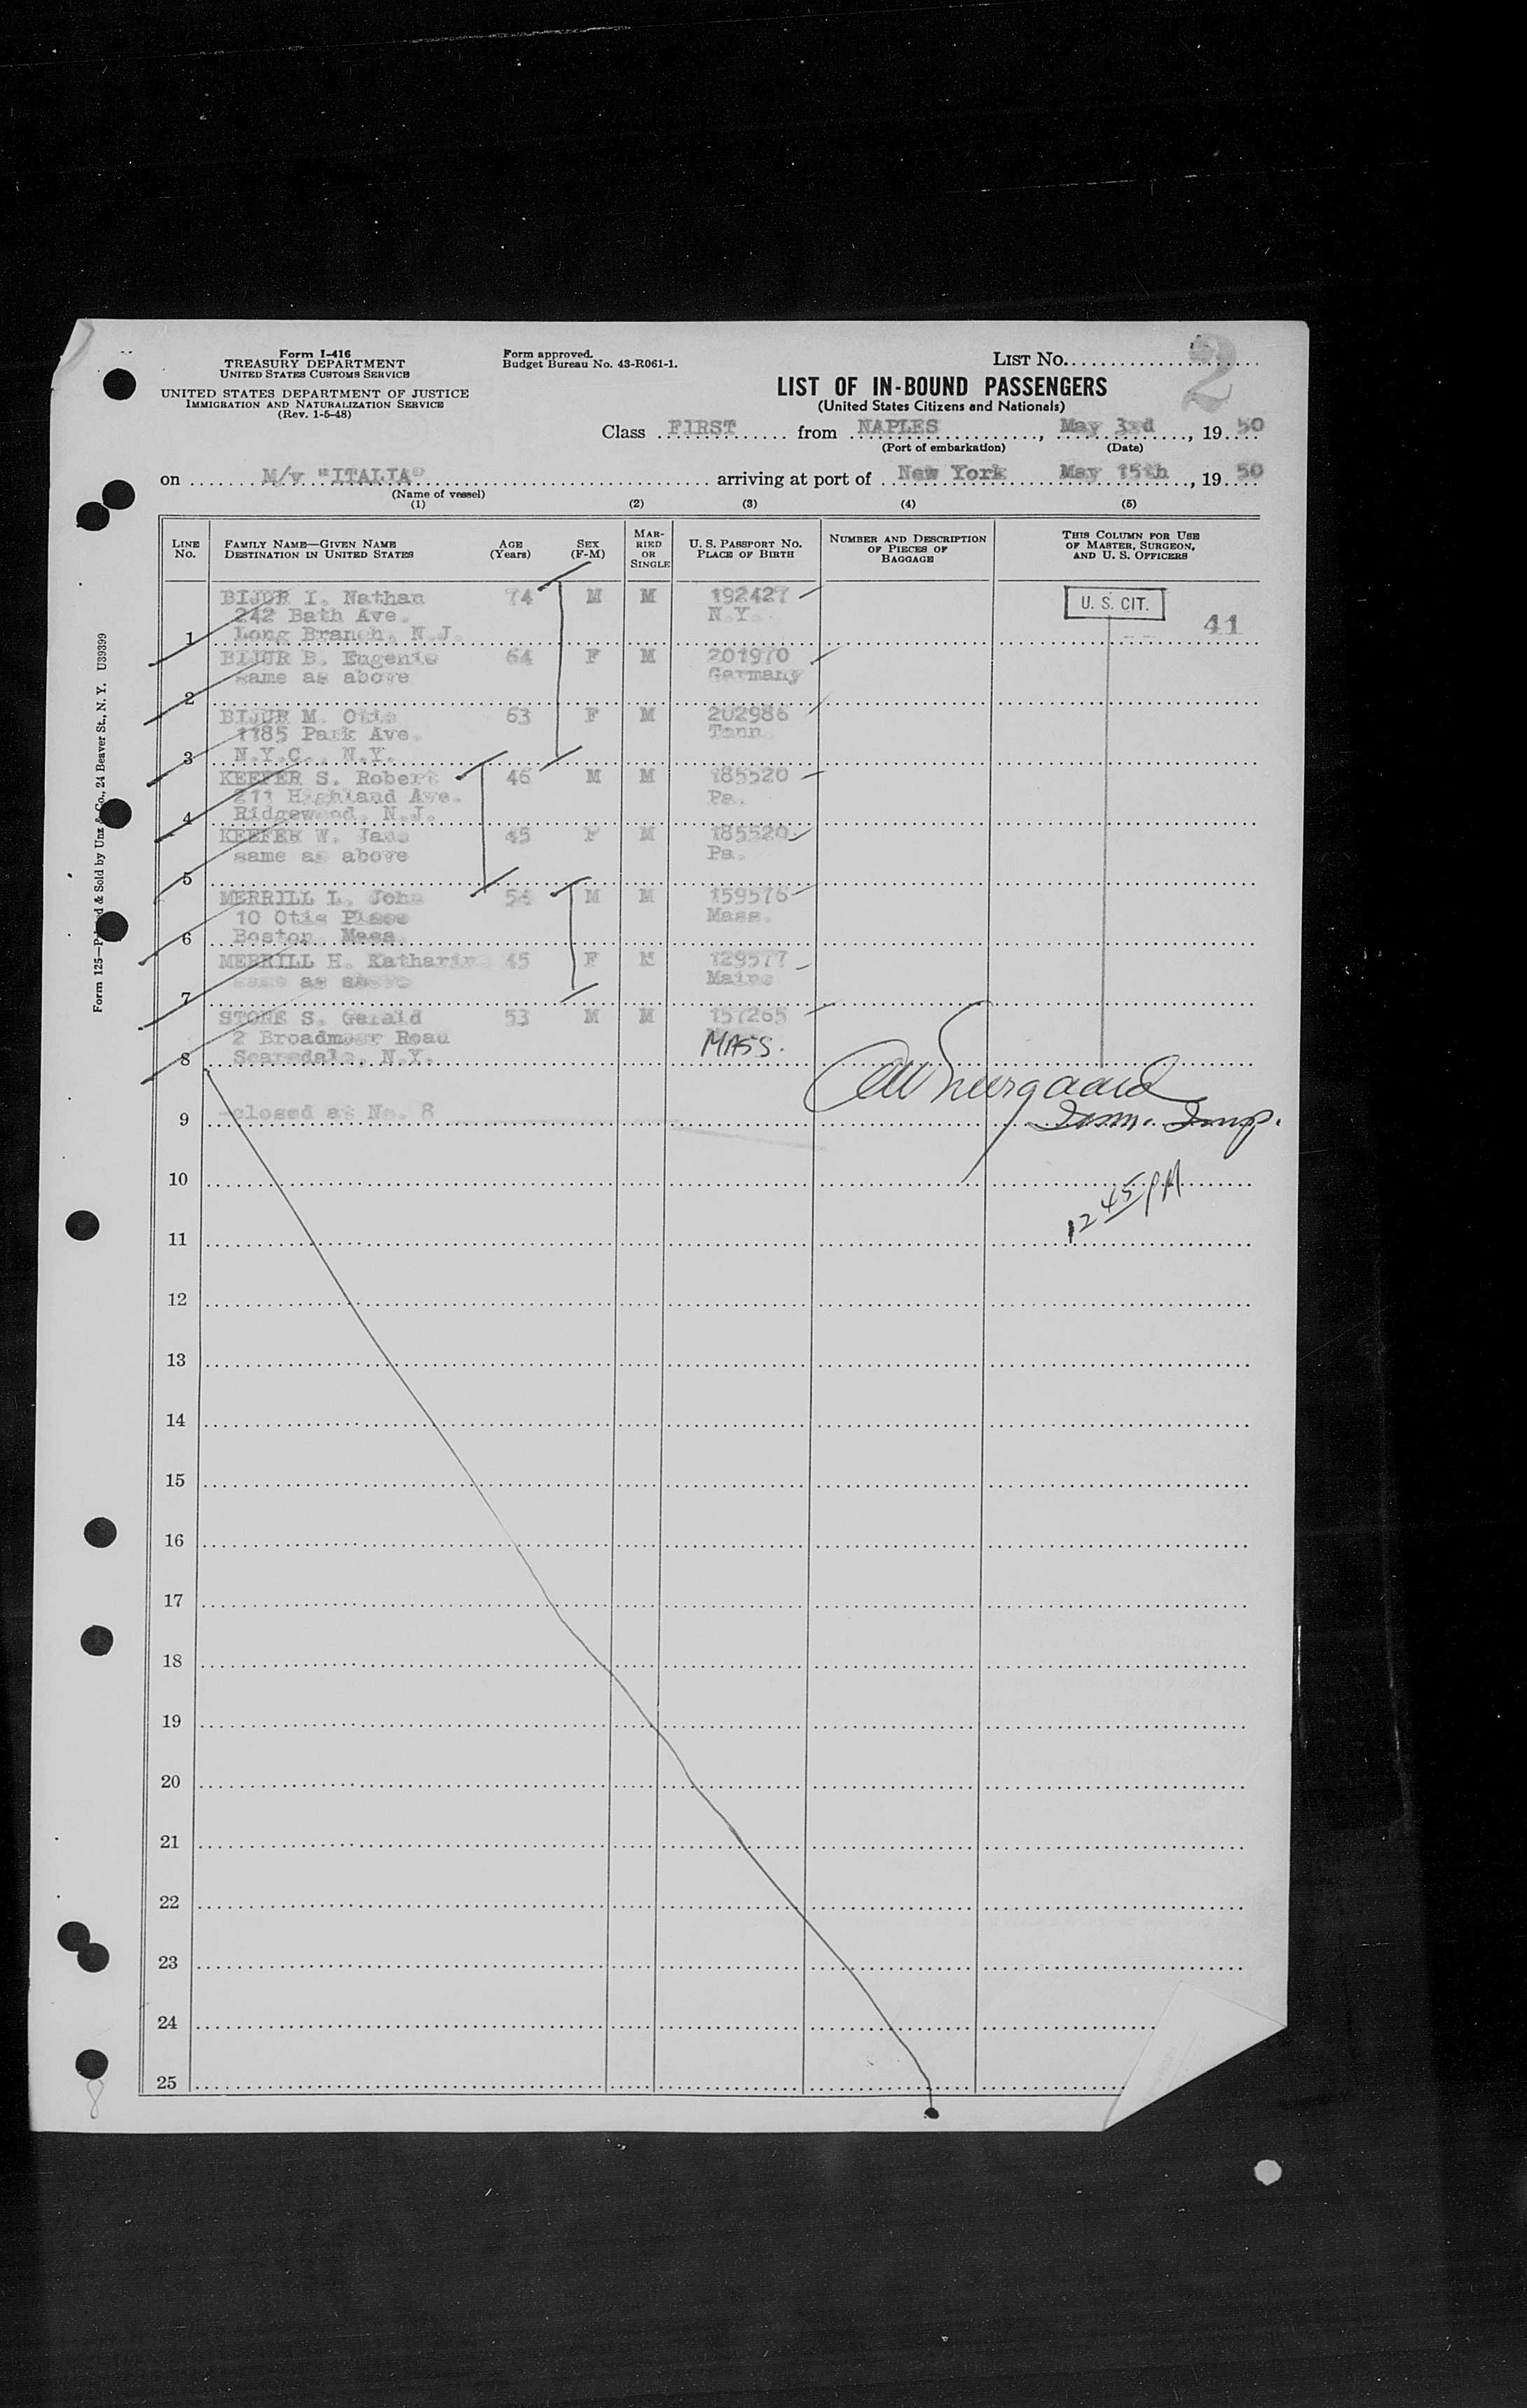 Form I-416
TREASURY DEPARTMENT
UNITED STATES CUSTOMS SERVICE
UNITED STATES DEPARTMENT OF JUSTICE
IMMIGRATION AND NATURALIZATION SERVICE
(Rev. 1-5-48)
Form approved.
Budget Bureau No. 43-R061-1.
LIST NO. 2
LIST OF IN-BOUND PASSENGERS
(United States Citizens and Nationals)
Class FIRST from NAPLES, May 3rd, 19 50
(Port of embarkation) (Date)
on M/v "ITALIA" arriving at port of New York May 15th, 19 50
(Name of vessel)
(1) (2) (3) (4) (5)
LINE NO. FAMILY NAME—GIVEN NAME DESTINATION IN UNITED STATES AGE (Years) SEX (F-M) MARRIED OR SINGLE U. S. PASSPORT NO. PLACE OF BIRTH NUMBER AND DESCRIPTION OF PIECES OF BAGGAGE THIS COLUMN FOR USE OF MASTER, SURGEON, AND U. S. OFFICERS
BIJUR I. Nathan 74 M M 192427 U. S. CIT.
242 Bath Ave. N.Y. 41
1 Long Branch, N.J.
BIJUR B. Eugenie 64 F M 201970
same as above Germany
2
BIJUR M. Otis 63 F M 202986
1185 Park Ave. Tenn.
3 N.Y.C., N.Y.
KEEFER S. Robert 46 M M 185520
211 Highland Ave. Pa.
4 Ridgewood, N.J.
KEEFER W. Jane 45 F M 185520
same as above Pa.
5
MERRILL L. John 54 M M 159576
10 Otis Place Mass.
6 Boston, Mass.
MERRILL H. Katharine 45 F M 129577
same as above Maine
7
STONE S. Gerald 53 M M 157265
2 Broadmoor Road MASS.
8 Scarsdale, N.Y.
9 -closed at No. 8
Imm. Insp.
10
12 45 PM
11
12
13
14
15
16
17
18
19
20
21
22
23
24
25
8
Form 125—Printed & Sold by Unz & Co., 24 Beaver St., N. Y. U39399